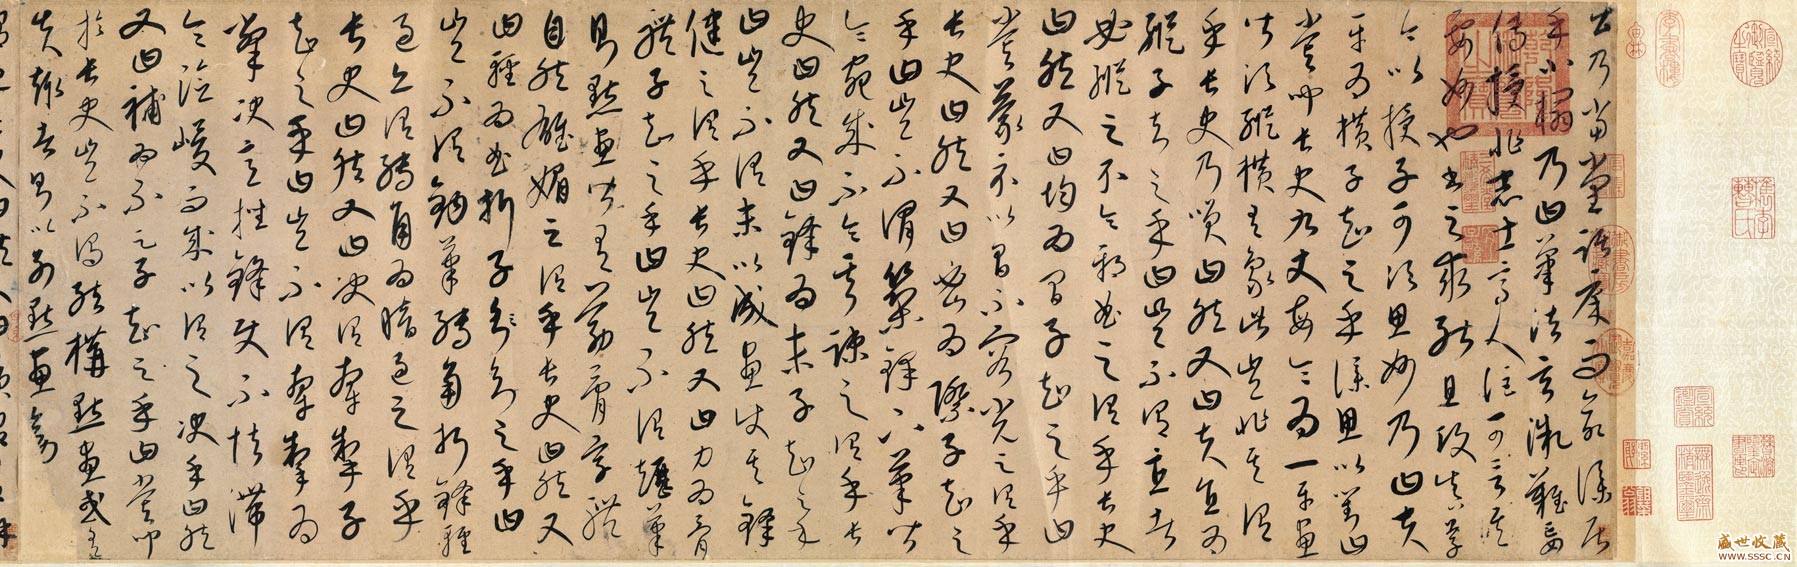 乃當堂踞床而命僕居
乎小榻乃曰筆法玄微難妄
傳授非志士高人詎可言其
要妙也書之求能且攻真草
今以授子可須思妙乃曰夫
平為橫子知之乎僕思以對曰
嘗聞長史九丈每令為一平畫
皆須縱橫有象此豈非其謂
乎長史乃笑曰然又曰夫直為
縱子知之乎曰豈不謂直者
必縱之不令邪曲之謂乎長史
曰然又曰均為間子知之乎曰
嘗蒙示以間不容光之謂乎
長史曰然又曰密為際子知之
乎曰豈不謂築鋒下筆皆
令宛成不令其疎之謂乎長
史曰然又曰鋒為末子知之乎
曰豈不謂末以成畫使其鋒
健之謂乎長史曰然又曰力為骨
體子知之乎曰豈不謂趯筆
則點畫皆有筋骨字體
自然雄媚之謂乎長史曰然又
曰輕為曲折子知之乎曰
豈不謂鉤筆轉角折鋒輕
過亦謂轉角為暗過之謂乎
長史曰然又曰決謂牽掣子
知之乎曰豈不謂牽掣為
筆決意挫鋒使不怯滯
令險峻而成以謂之決乎曰然
又曰補為不足子知之乎曰嘗聞
於長史豈不謂結構點畫或有
失趣者則以別點畫旁
盛世收藏
WWW.SSSC.CN